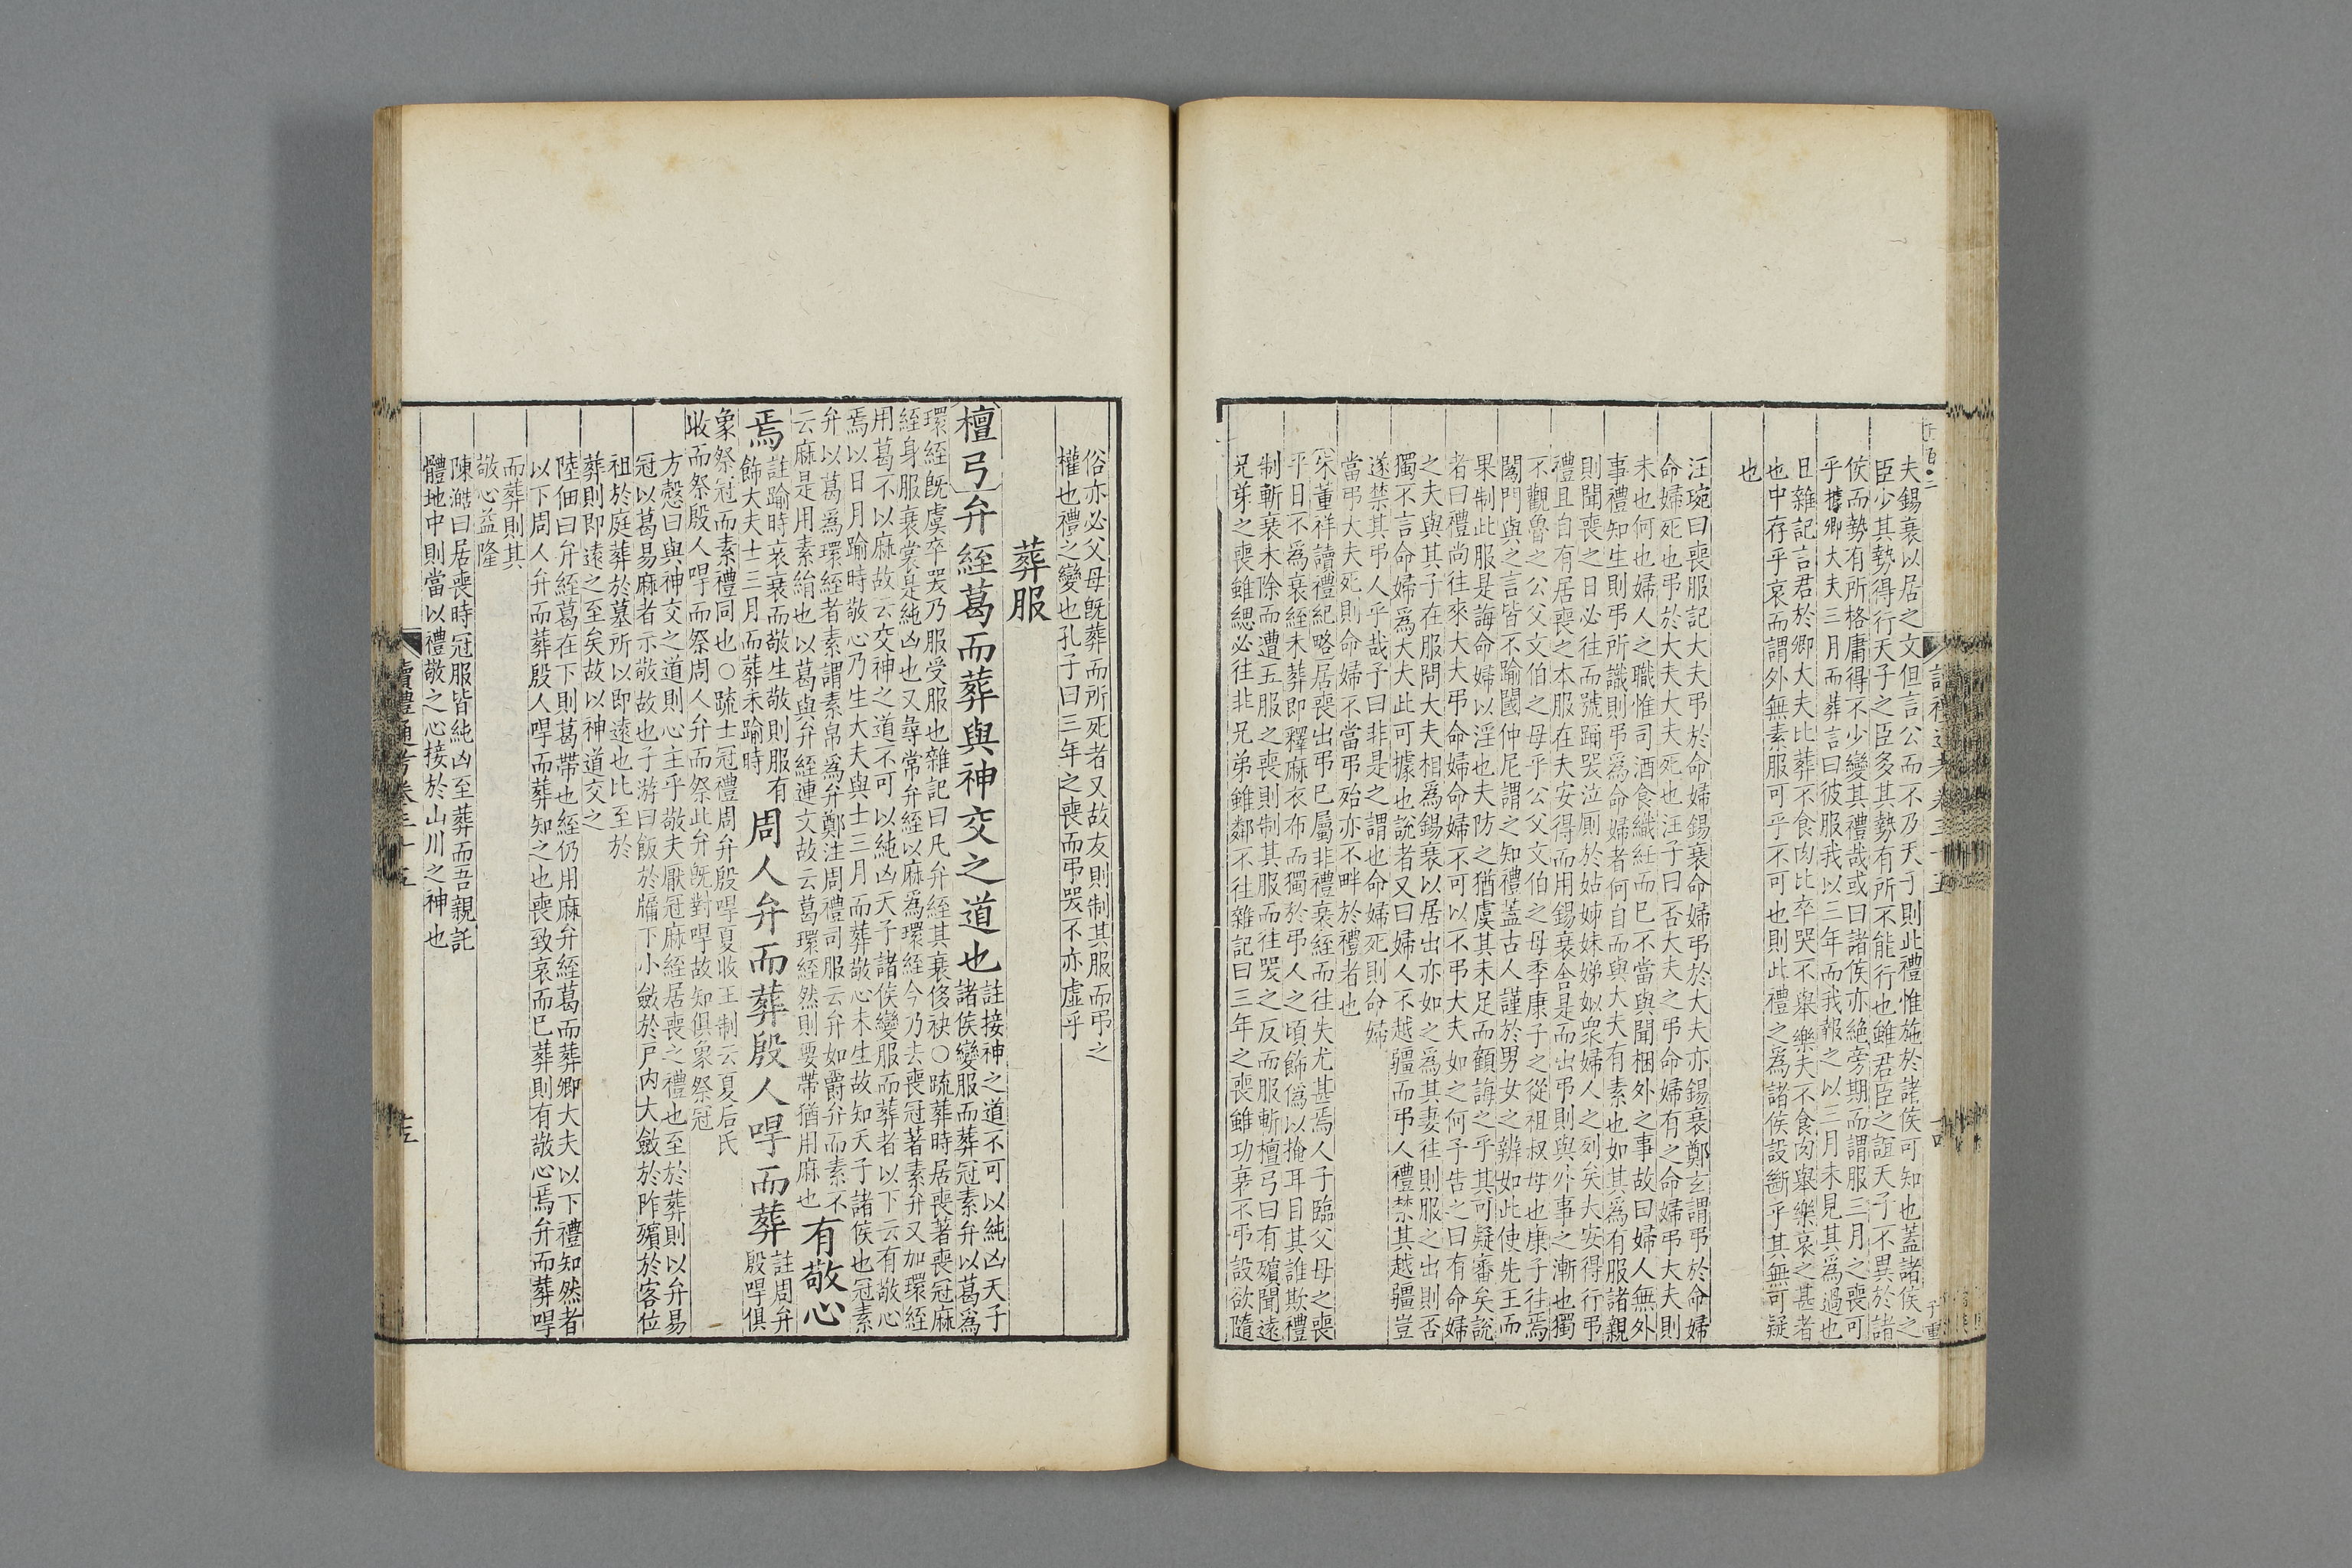 夫錫衰以居之文但言公而不乃天子則此禮惟施於諸侯可知也蓋諸侯之
臣少其勢得行天子之臣多其勢有所不能行也雖君臣之誼天子不異於諸
侯而勢有所格庸得不少變其禮哉或曰諸侯亦絶旁期而謂服三月之喪可
乎據卿大夫三月而葬言曰彼服我以三年而我報之以三月未見其為過也
日雜記言君於卿大夫比葬不食肉比卒哭不舉樂夫不食肉舉樂哀之甚者
也中存乎哀而謂外無素服可乎不可也則此禮之為諸侯設斷乎其無可疑
也
汪琬曰喪服記大夫弔於命婦錫衰命婦弔於大夫亦錫衰鄭玄謂弔於命婦
命婦死也弔於大夫大夫死也汪子曰否大夫之弔命婦有之命婦弔大夫則
未也何也婦人之職惟司酒食織紝而已不當與聞梱外之事故曰婦人無外
事禮知生則弔所識則弔為命婦者何自而與大夫有素也如其為有服諸親
則聞喪之日必往而號踊哭泣厠於姑姊妹娣姒衆婦人之列矣大安得行弔
禮且自有居喪之本服在夫安得而用錫衰舍是而出弔則與外事之漸也獨
不觀魯之公父文伯之母乎公父文伯之母季康子之從祖叔母也康子往焉
闔門與之言皆不踰閾仲尼謂之知禮蓋古人謹於男女之辨如此使先王而
果制此服是誨命婦以淫也夫防之猶虞其未足而顧誨之乎其可疑審矣說
者曰禮尚往來大夫弔命婦命婦不可以不弔大夫如之何子告之曰有命婦
之夫與其子在服問大夫相為錫衰以居出亦如之為其妻往則服之出則否
獨不言命婦為大夫此可據也說者又曰婦人不越疆而弔人禮禁其越疆豈
遂禁其弔人乎哉子曰非是之謂也命婦死則命婦
當弔大夫死則命婦不當弔殆亦不畔於禮者也
宋董祥讀禮紀略居喪出弔已屬非禮衰絰而往失尤甚焉人子臨父母之喪
平日不為衰絰未葬即釋麻衣布而獨於弔人之頃飾偽以掩耳目其誰欺禮
制斬衰未除而遭五服之喪則制其服而往哭之反而服斬檀弓曰有殯聞遠
兄弟之喪雖緦必往非兄弟雖鄰不往雜記曰三年之喪雖功衰不弔設欲隨
俗亦必父母既葬而所死者又故友則制其服而弔之
權也禮之變也孔子曰三年之喪而弔哭不亦虛乎
葬服
檀弓弁絰葛而葬與神交之道也註接神之道不可以純凶天子
諸侯變服而葬冠素弁以葛為
環絰既虞卒哭乃服受服也雜記曰凡弁絰其衰侈袂○疏葬時居喪著喪冠麻
絰身服衰裳是純凶也又尋常弁絰以麻為環絰今乃去喪冠著素弁又加環絰
用葛不以麻故云交神之道不可以純凶天子諸侯變服而葬者以下云有敬心
焉以日月踰時敬心乃生大夫與士三月而葬敬心未生故知天子諸侯也冠素
弁以葛為環絰者素謂素帛為弁鄭注周禮司服云弁如爵弁而素不
云麻是用素絹也以葛與弁絰連文故云葛環絰然則要帶猶用麻也有敬心
焉註踰時哀衰而敬生敬則服有
飾大夫士三月而葬未踰時周人弁而葬殷人哻而葬註周弁
殷哻俱
象祭冠而素禮同也○疏士冠禮周弁殷哻夏收王制云夏后氏
收而祭殷人哻而祭周人弁而祭此弁既對哻故知俱象祭冠
方慤曰與神交之道則心主乎敬夫厭冠麻絰居喪之禮也至於葬則以弁易
冠以葛易麻者示敬故也子游曰飯於牖下小斂於戶内大斂於阼殯於客位
祖於庭葬於墓所以即遠也比至於
葬則即遠之至矣故以神道交之
陸佃曰弁絰葛在下則葛帶也絰仍用麻弁絰葛而葬卿大夫以下禮知然者
以下周人弁而葬殷人哻而葬知之也喪致哀而已葬則有敬心焉弁而葬哻
而葬則其
敬心益隆
陳澔曰居喪時冠服皆純凶至葬而吾親託
體地中則當以禮敬之心接於山川之神也
讀禮通考卷三十五
十五